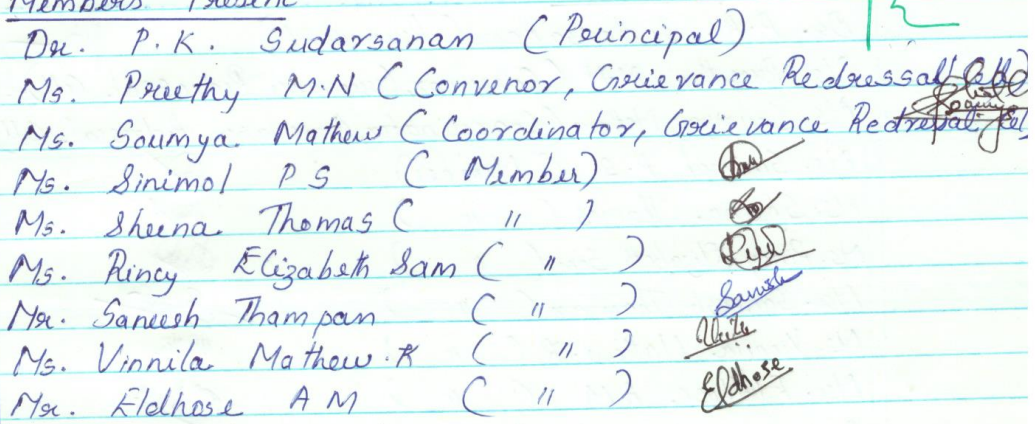 Members Present
Dr. P. K. Sudarsanan (Principal)
Ms. Preethy M.N (Convenor, Grievance Redressal Cell)
Ms. Soumya Mathew (Coordinator, Grievance Redressal Cell)
Ms. Sinimol P S (Member)
Ms. Sheena Thomas ( " )
Ms. Rincy Elizabeth Sam ( " )
Mr. Saneesh Thampan ( " ) Sanish
Ms. Vinnila Mathew.K ( " )
Mr. Eldhose A M ( " ) Eldhose